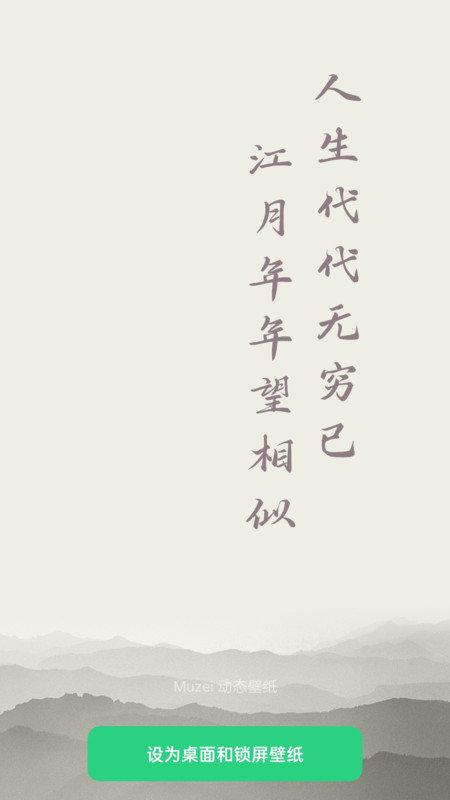 人生代代无穷已
江月年年望相似
Muzei 动态壁纸
设为桌面和锁屏壁纸